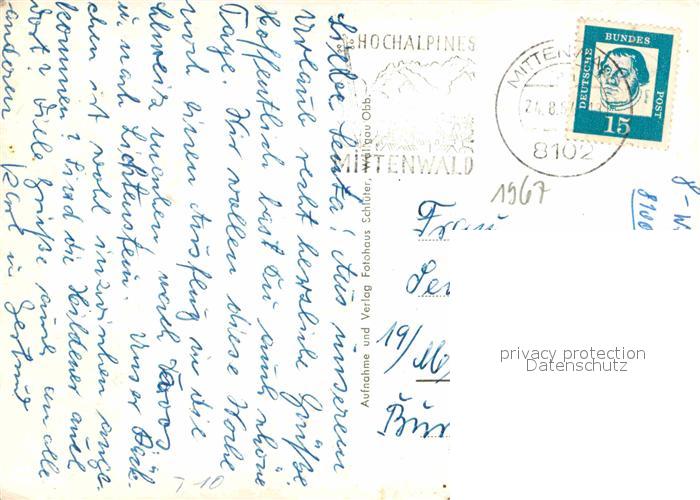 Liebe Senta! Aus unserem
Urlaub recht herzliche Grüße.
Hoffentlich hast Du auch schöne
Tage. Wir wollen diese Woche
noch einen Ausflug in die
Schweiz machen nach Davos
u. nach Lichtenstein. Unser Päck-
chen ist wohl inzwischen ange-
kommen? Sind die Hildener auch
dort? Viele Grüße auch an alle
anderen Karl u. Gertrud
Aufnahme und Verlag Fotohaus Schlüter, Wallgau Obb.
HOCHALPINES
MITTENWALD
MITTENWALD
24.8.67
8102
DEUTSCHE
BUNDES
POST
15
1967
Frau
19/
8100
T 10
privacy protection
Datenschutz